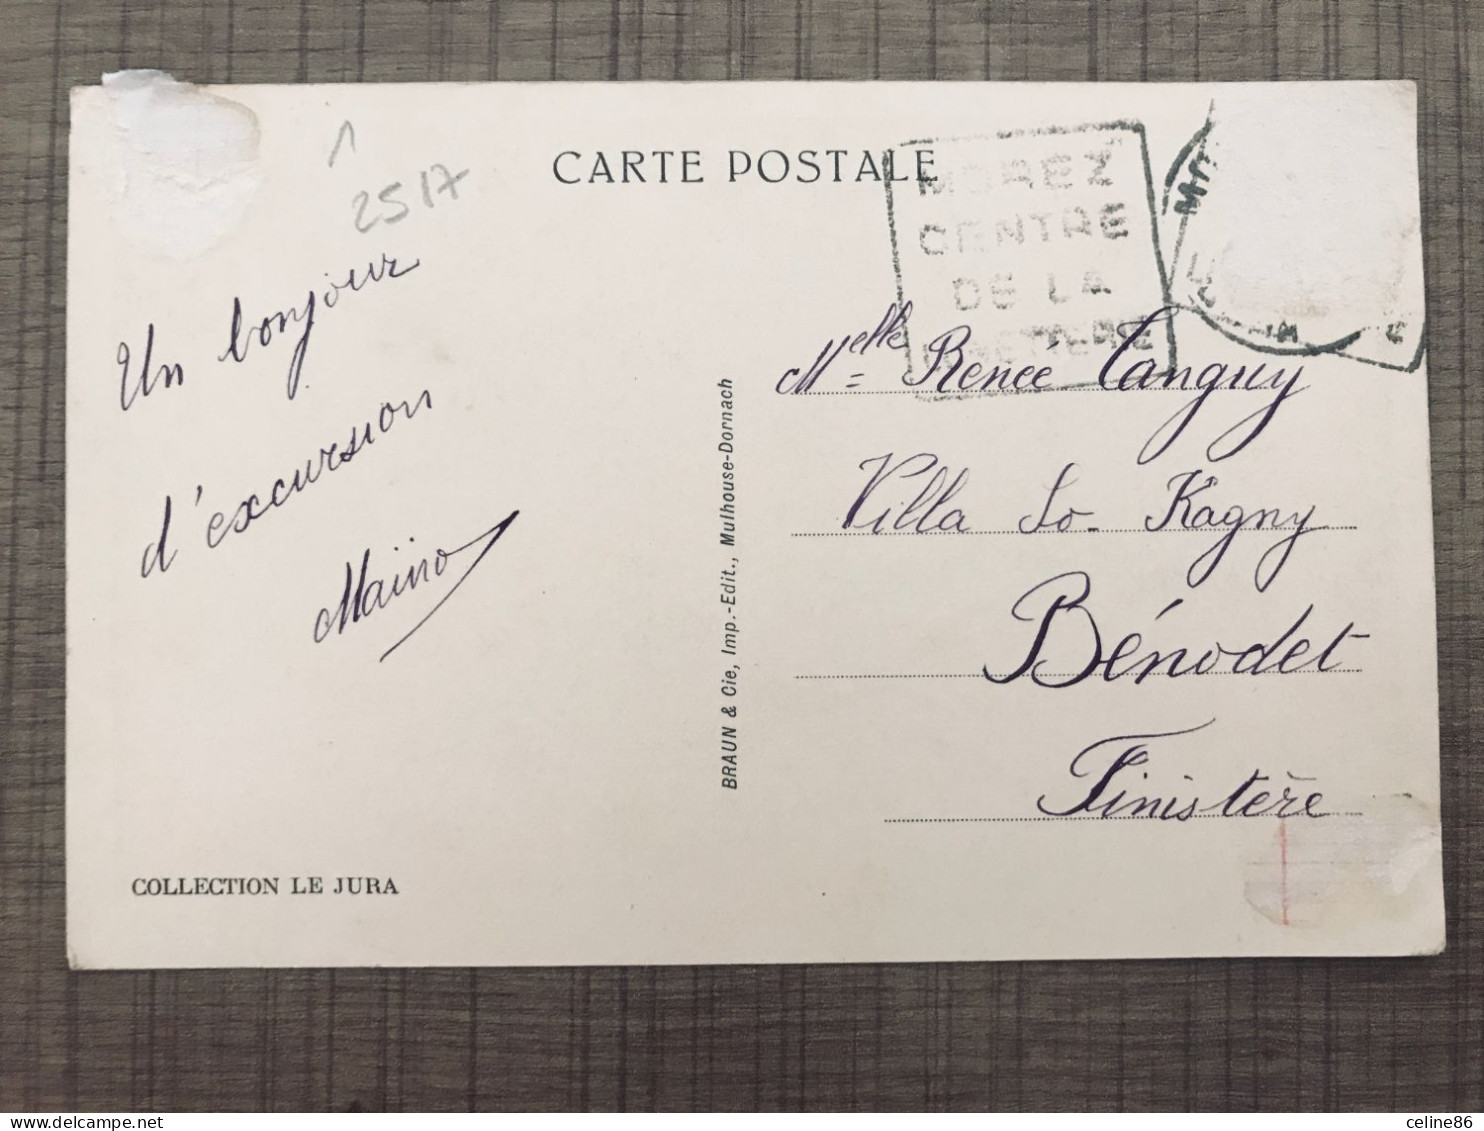 CARTE POSTALE
2517
MOREZ
CENTRE
DE LA
LUNETTERIE
Un bonjour
d'excursion
Maïno
Melle Renée Tanguy
Villa So-Kagny
Bénodet
Finistère
BRAUN & Cie, Imp.-Edit., Mulhouse-Dornach
COLLECTION LE JURA
celine86